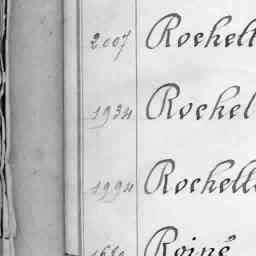 2007 Rochett
1934 Rochel
1994 Rochell
Roiné